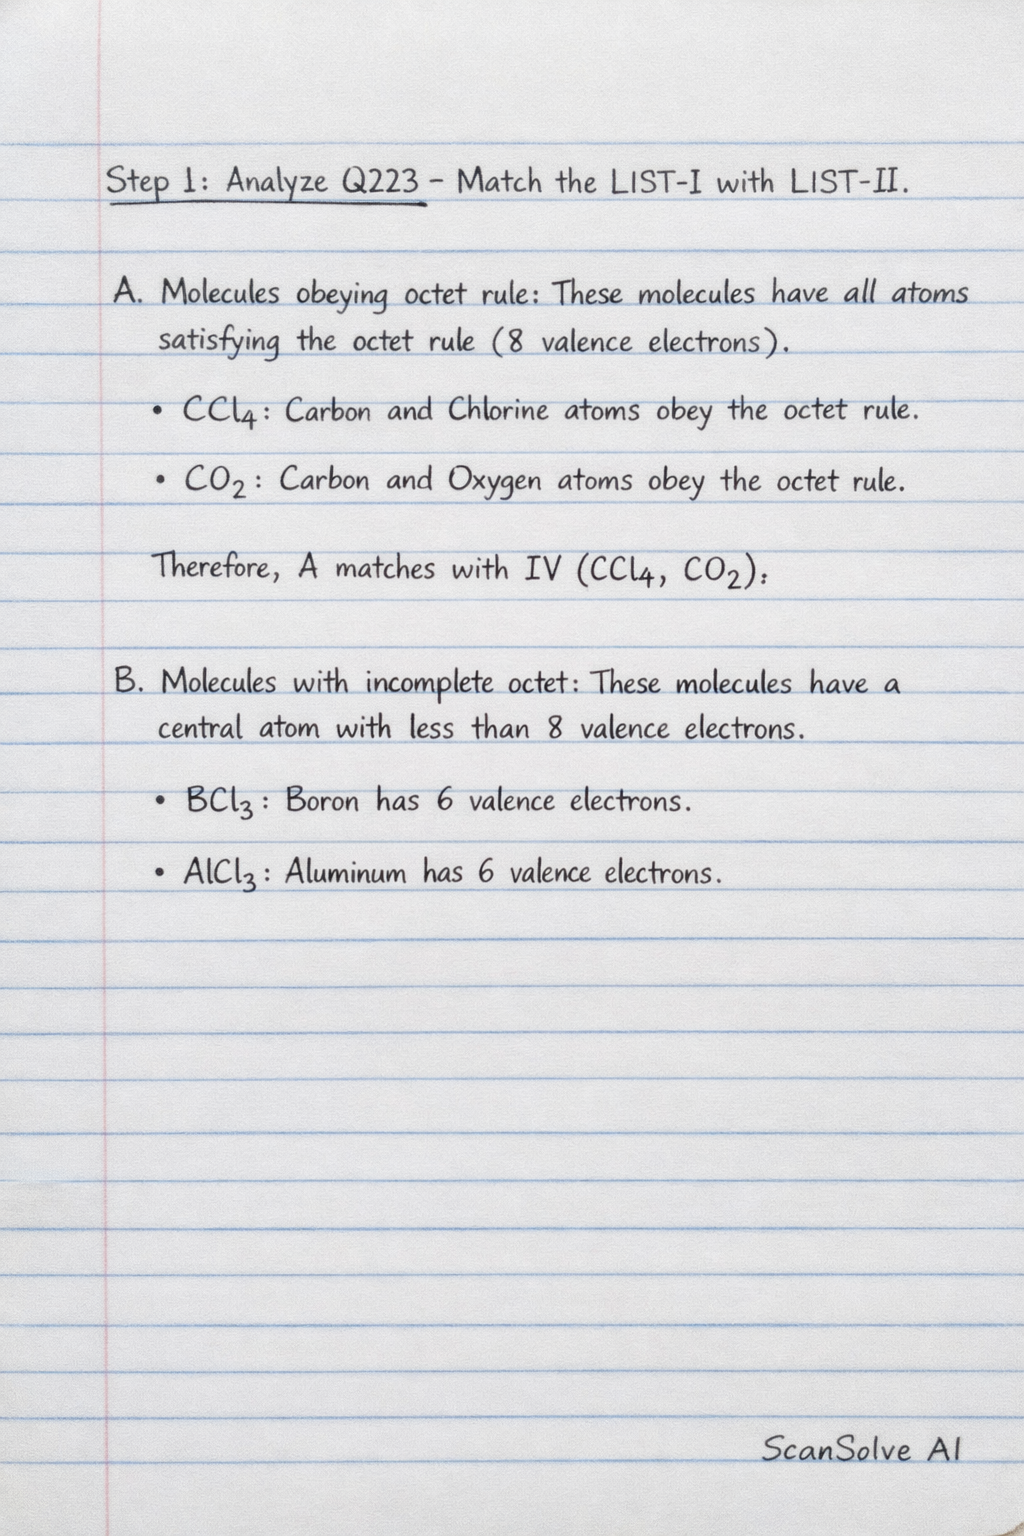 Step 1: Analyze Q223 – Match the LIST-I with LIST-II.
A. Molecules obeying octet rule: These molecules have all atoms
satisfying the octet rule (8 valence electrons).
• CCl₄: Carbon and Chlorine atoms obey the octet rule.
• CO₂: Carbon and Oxygen atoms obey the octet rule.
Therefore, A matches with IV (CCl₄, CO₂);
B. Molecules with incomplete octet: These molecules have a
central atom with less than 8 valence electrons.
• BCl₃: Boron has 6 valence electrons.
• AlCl₃: Aluminum has 6 valence electrons.
ScanSolve AI